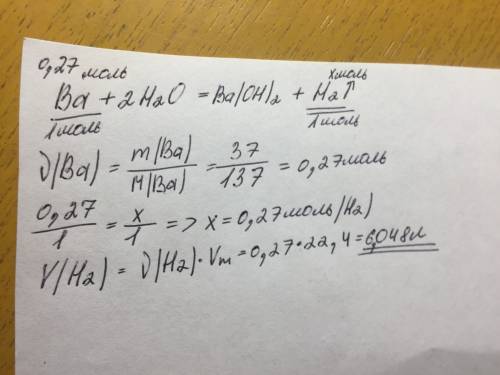 0,27 моль x моль
Ba + 2H2O = Ba(OH)2 + H2↑
1моль 1моль
ν(Ba) = m(Ba)/M(Ba) = 37/137 = 0,27моль
0,27/1 = x/1 => x = 0,27моль(H2)
V(H2) = ν(H2)·Vm = 0,27·22,4 = 6,048л